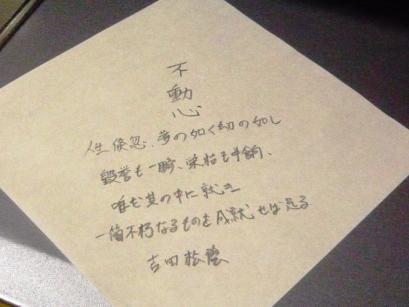 不動心
人生倏忽、夢の如く幻の如し
毀誉も一瞬、栄枯も半餉、
唯だ其の中に就き
一箇不朽なるものを成就せば足る
吉田松陰